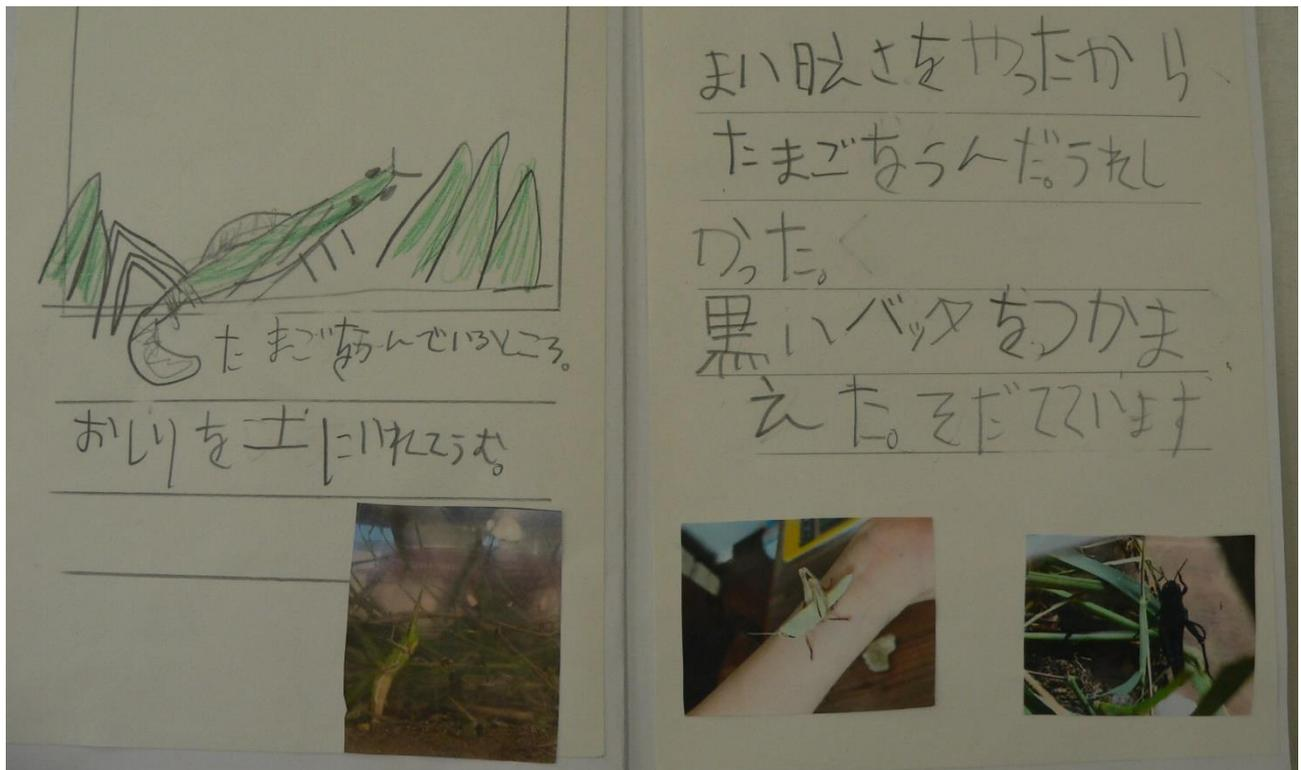 たまごをうんでいるところ。
おしりを土にいれてうむ。
まい日えさをやったから
たまごをうんだ。うれし
かった。く
黒いバッタをつかま
えた。そだてています